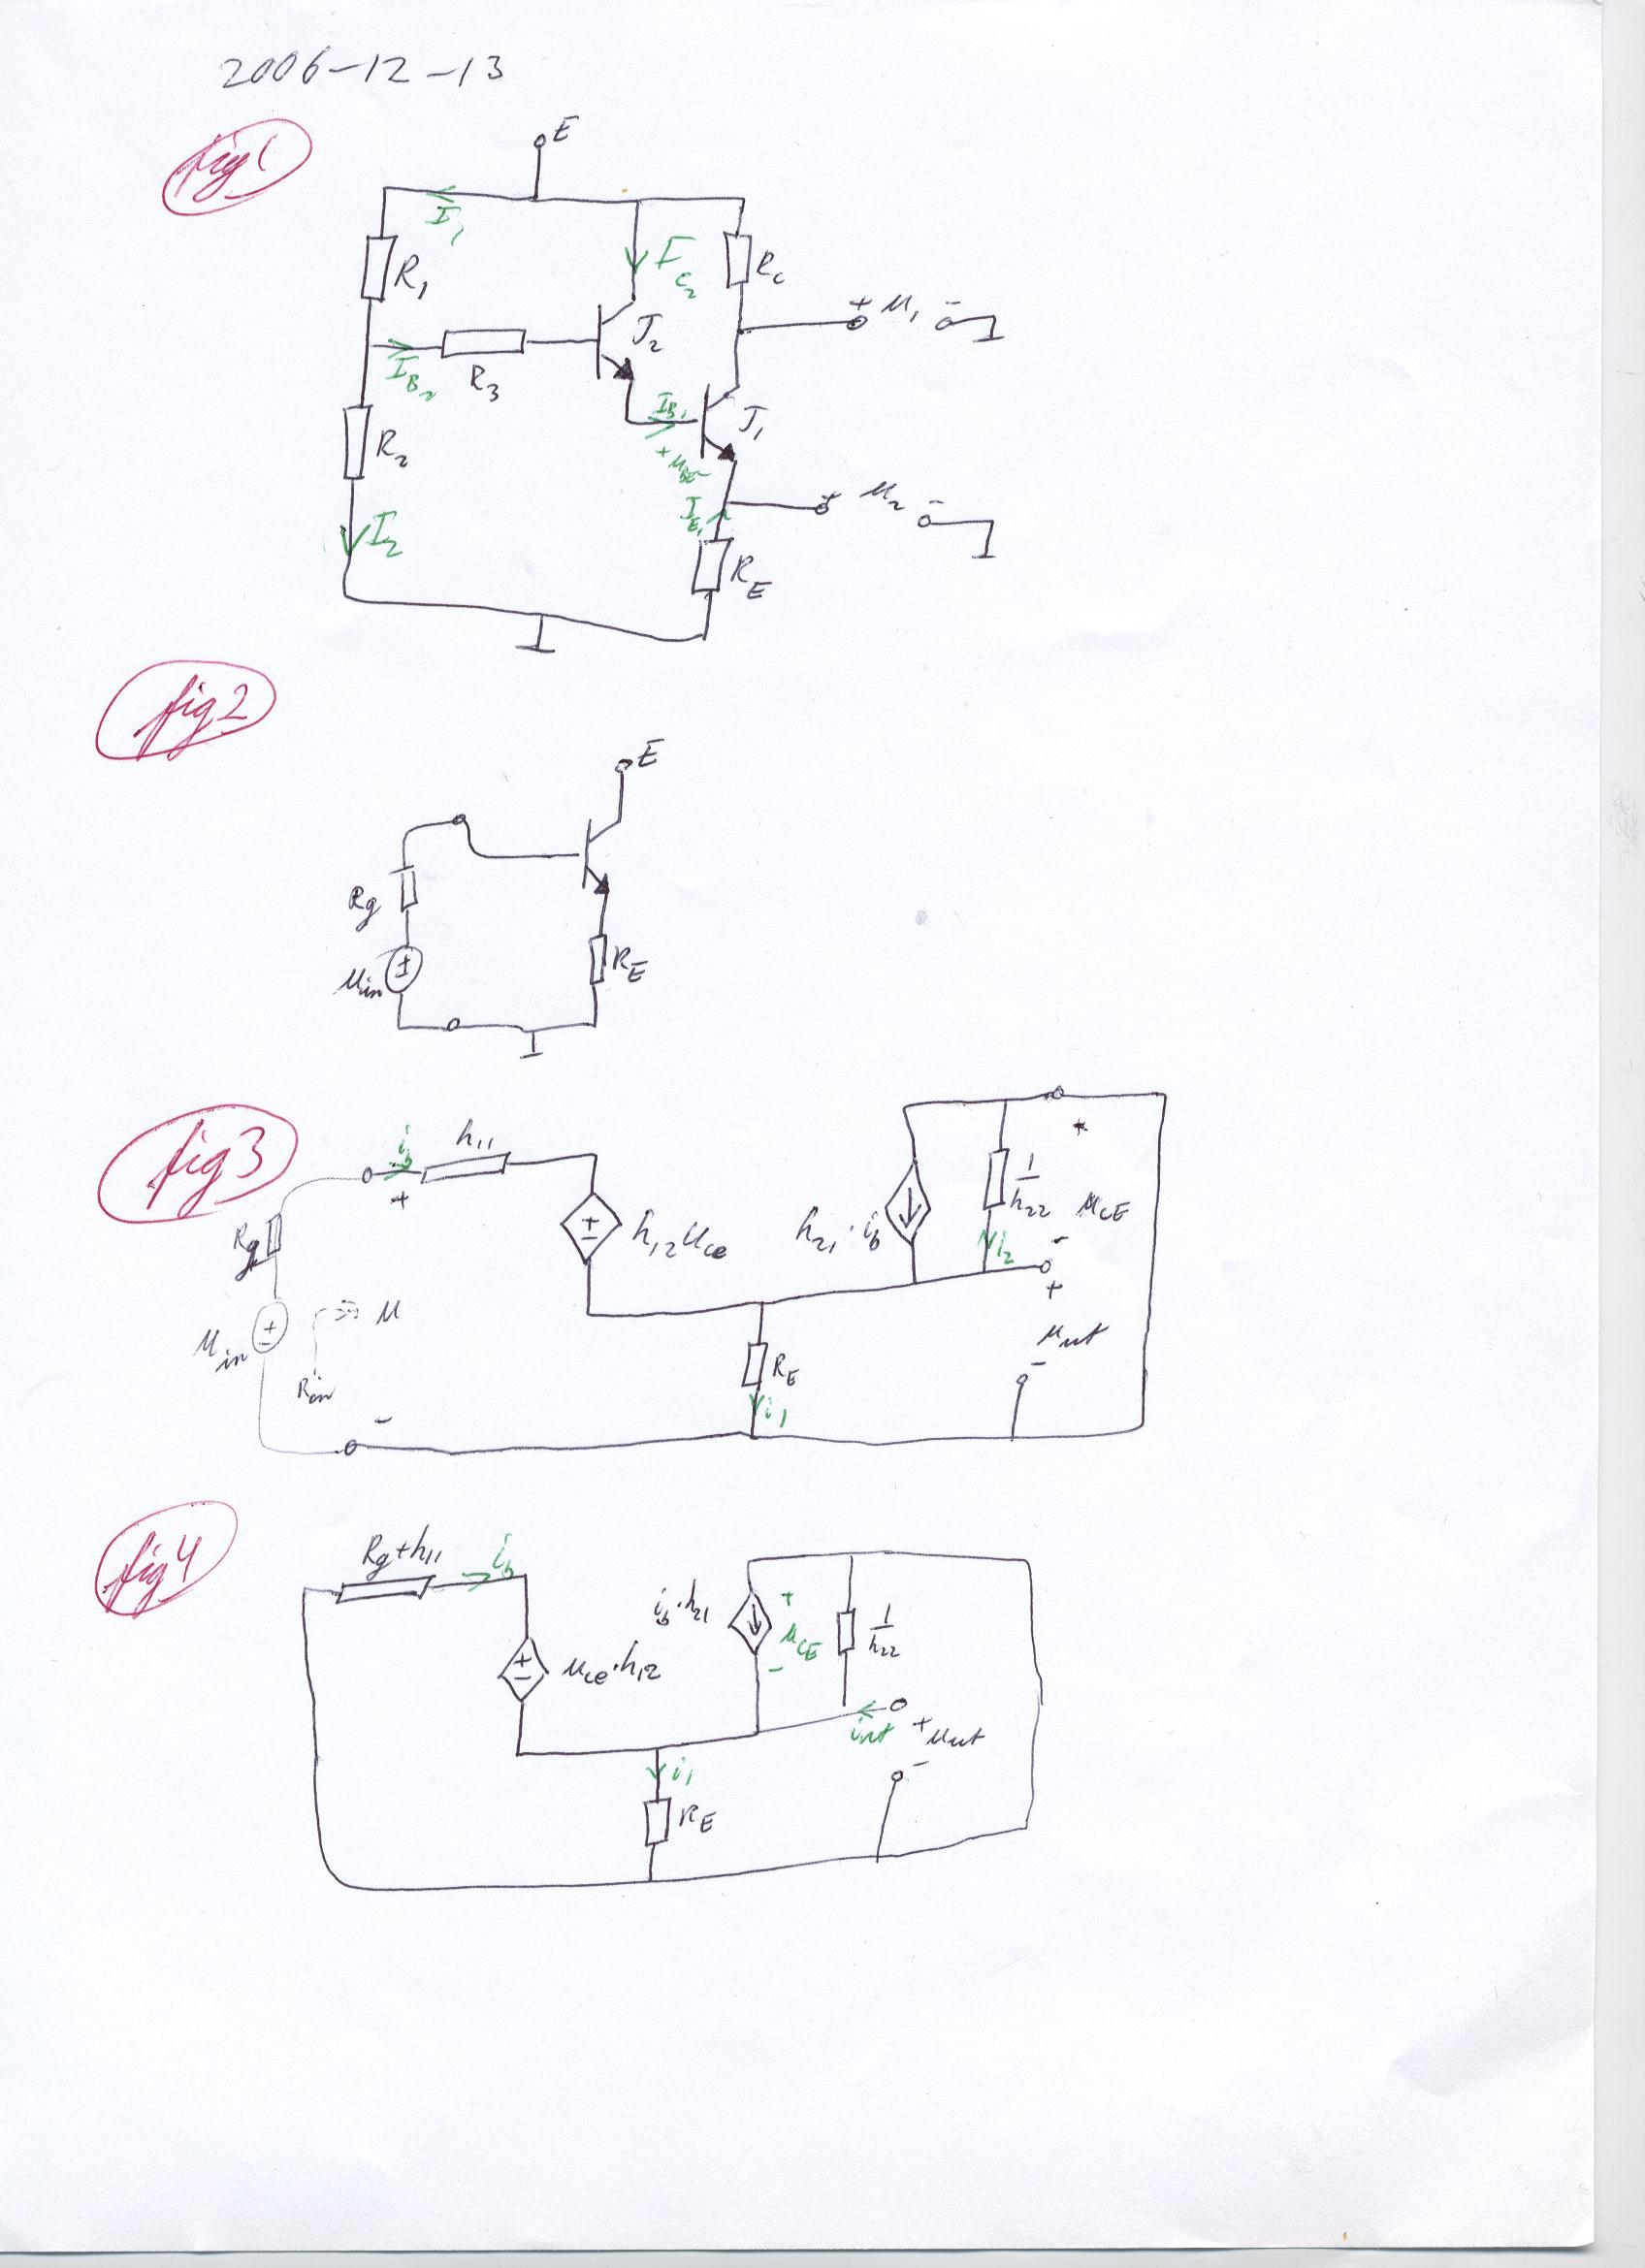 2006-12-13
fig 1
E
I1
IC2
R1
RC
+ u1 -
J2
IB2
R3
IB1
J1
R2
+ uBE -
+ u2 -
IE1
I2
RE
fig 2
E
Rg
uin
+
-
RE
fig 3
ib
h11
+
+
1/h22
uCE
Rg
+
-
h12 uce
h21 · ib
i2
-
+
u
uin
+
-
uut
-
Rin
RE
i1
-
fig 4
Rg+h11
ib
ib·h21
+
uCE
-
1/h22
+
-
uce·h12
iut
+
uut
-
i1
RE